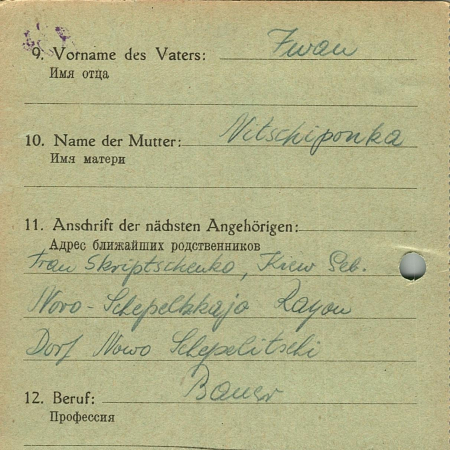 9. Vorname des Vaters: Iwan
Имя отца
10. Name der Mutter: Nitschiponka
Имя матери
11. Anschrift der nächsten Angehörigen:
Адрес ближайших родственников
Frau Skriptschenko, Kiew Geb.
Nowo-Schepelizkaja Rayon
Dorf Nowo Schepelitschi
12. Beruf: Bauer
Профессия